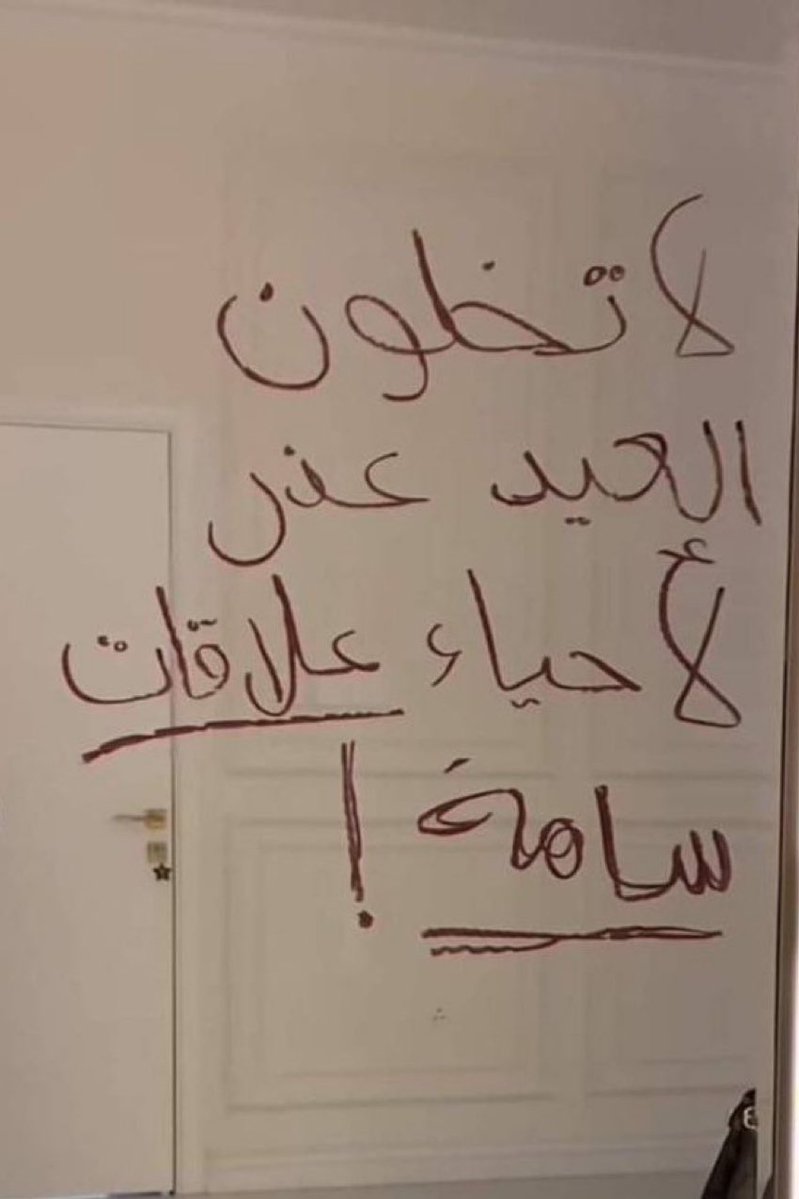 لا تخلون
العيد عذر
لأحياء علاقات
سامة !